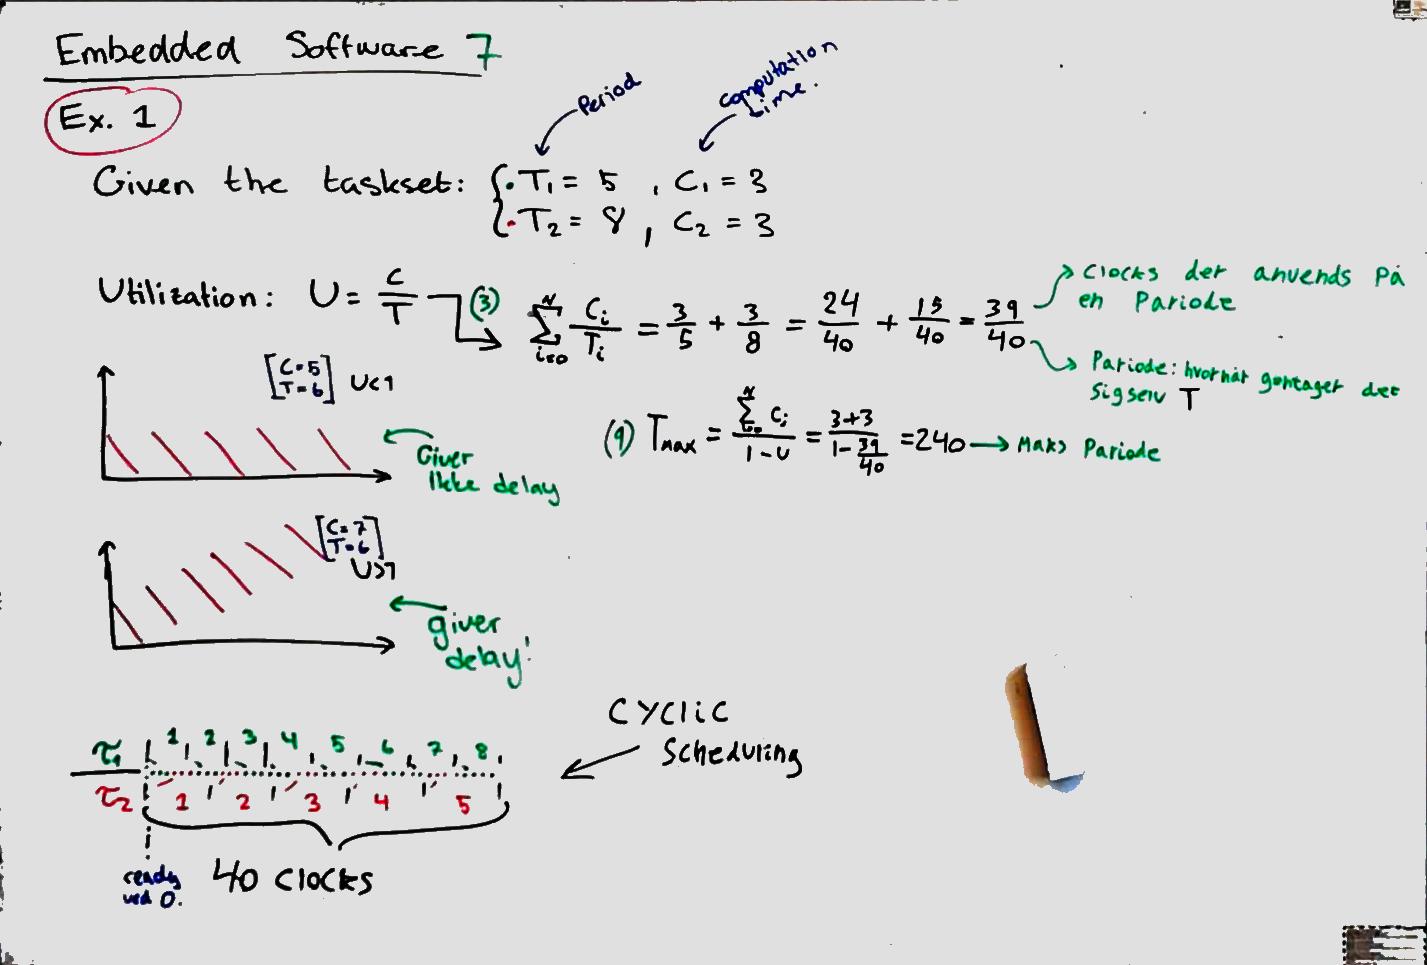 Embedded Software 7
Ex. 1
Period
computation
time.
Given the taskset: { • T₁ = 5 , C₁ = 3
• T₂ = 8 , C₂ = 3
Utilization: U = C/T (3) ∑ i=0 N Ci/Ti = 3/5 + 3/8 = 24/40 + 15/40 = 39/40
Clocks der anvends på
en Pariode
Pariode: hvornår gentager det
sig selv T
[C=5
T=6] U<1
Giver
Ikke delay
(9) Tmax = ∑ i=0 N Ci / 1-U = 3+3 / 1-39/40 = 240 → Maks Pariode
[C=7
T=6]
U>1
giver
delay!
Cyclic
Scheduling
τ₁ 1 2 3 4 5 6 7 8
τ₂ 1 2 3 4 5
ready
ved 0.
40 Clocks